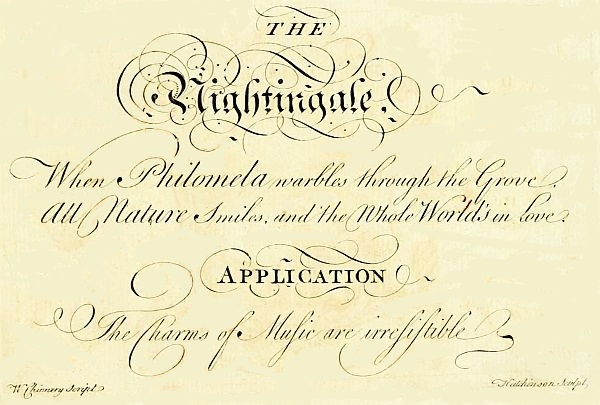 THE
Nightingale.
When Philomela warbles through the Grove.
All Nature Smiles, and the Whole World's in Love.
APPLICATION
The Charms of Muſic are irreſiſtible
W Chinnery Script
Hutchinson Sculpt.